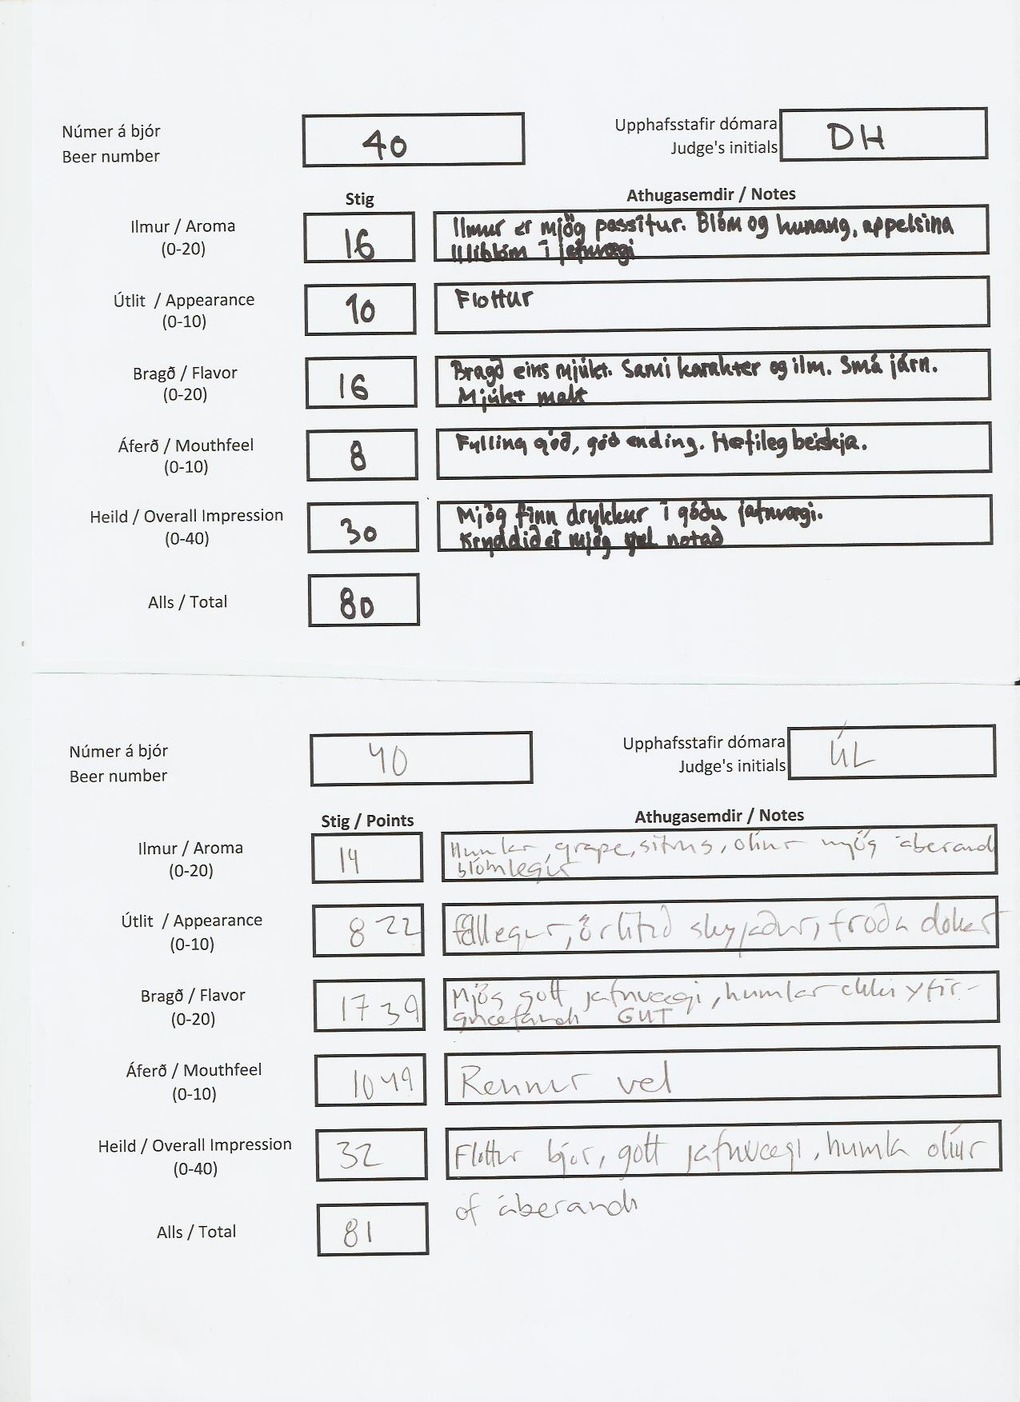 Númer á bjór
Beer number
40
Upphafsstafir dómara
Judge's initials
DH
Stig
Athugasemdir / Notes
Ilmur / Aroma
(0-20)
16
Ilmur er mjög passítur. Blóm og hunang, appelsina
í jafnvægi
Útlit / Appearance
(0-10)
10
Flottur
Bragð / Flavor
(0-20)
16
Bragð eins mjúkt. Sami karakter og ilm. Smá járn.
Mjúkt malt
Áferð / Mouthfeel
(0-10)
8
Fylling góð, góð ending. Hæfileg beiskja.
Heild / Overall Impression
(0-40)
30
Mjög fínn drykkur í góðu jafnvægi.
Kryddið er mjög vel notað
Alls / Total
80
Númer á bjór
Beer number
40
Upphafsstafir dómara
Judge's initials
ÚL
Stig / Points
Athugasemdir / Notes
Ilmur / Aroma
(0-20)
14
Humlar, grape, sitrus, olíur mjög áberandi
blómlegir
Útlit / Appearance
(0-10)
8 22
fallegur, örlítið skýjaður, froða
Bragð / Flavor
(0-20)
17 39
Mjög gott jafnvægi, humlar ekki yfir-
gnæfandi GUT
Áferð / Mouthfeel
(0-10)
10 49
Rennur vel
Heild / Overall Impression
(0-40)
32
Flottur bjór, gott jafnvægi, humla olíur
of áberandi
Alls / Total
81